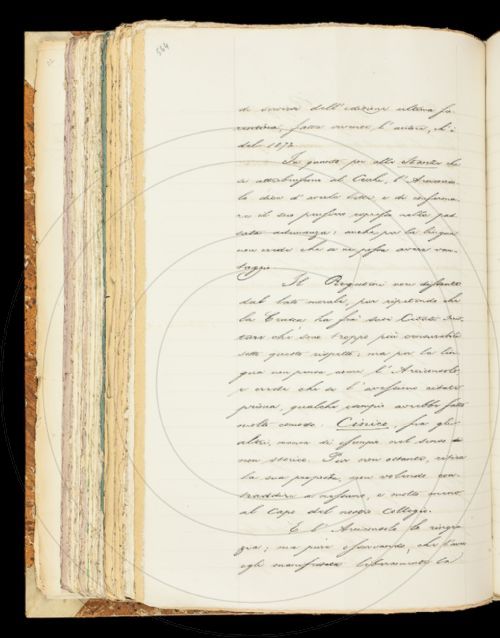 564
di servirsi dell'edizione ultima fio
rentina, fatta vivente l'autore, ch'è
del 1872.
In quanto poi alle Stanze che
si attribuiscono al Cecchi, l'Arciconso
lo dice d'averle lette e di conferma
re il suo pensiero espresso nella pas
sata adunanza: anche per la lingua
non crede che se ne possa avere van
taggio.
Il Rigutini non
dal lato morale, pur ripetendo che
la Crusca ha fra i suoi Citati Scrit
tori che sono troppo più censurabili
sotto questo rispetto: ma per la lin
gua non pensa come l'Arciconsolo,
e crede che se l'avessimo citato
prima, qualche esempio avrebbe fatto
molto comodo. Cinico, fra gli
altri, manca di esempio nel senso di
non storico. Pur non ostante, ritira
la sua proposta, non volendo con
traddire a nessuno, e molto meno
al Capo del nostro Collegio.
E l'Arciconsolo lo ringra
zia; ma pure osservando, che l'aver
egli manifestata liberamente la